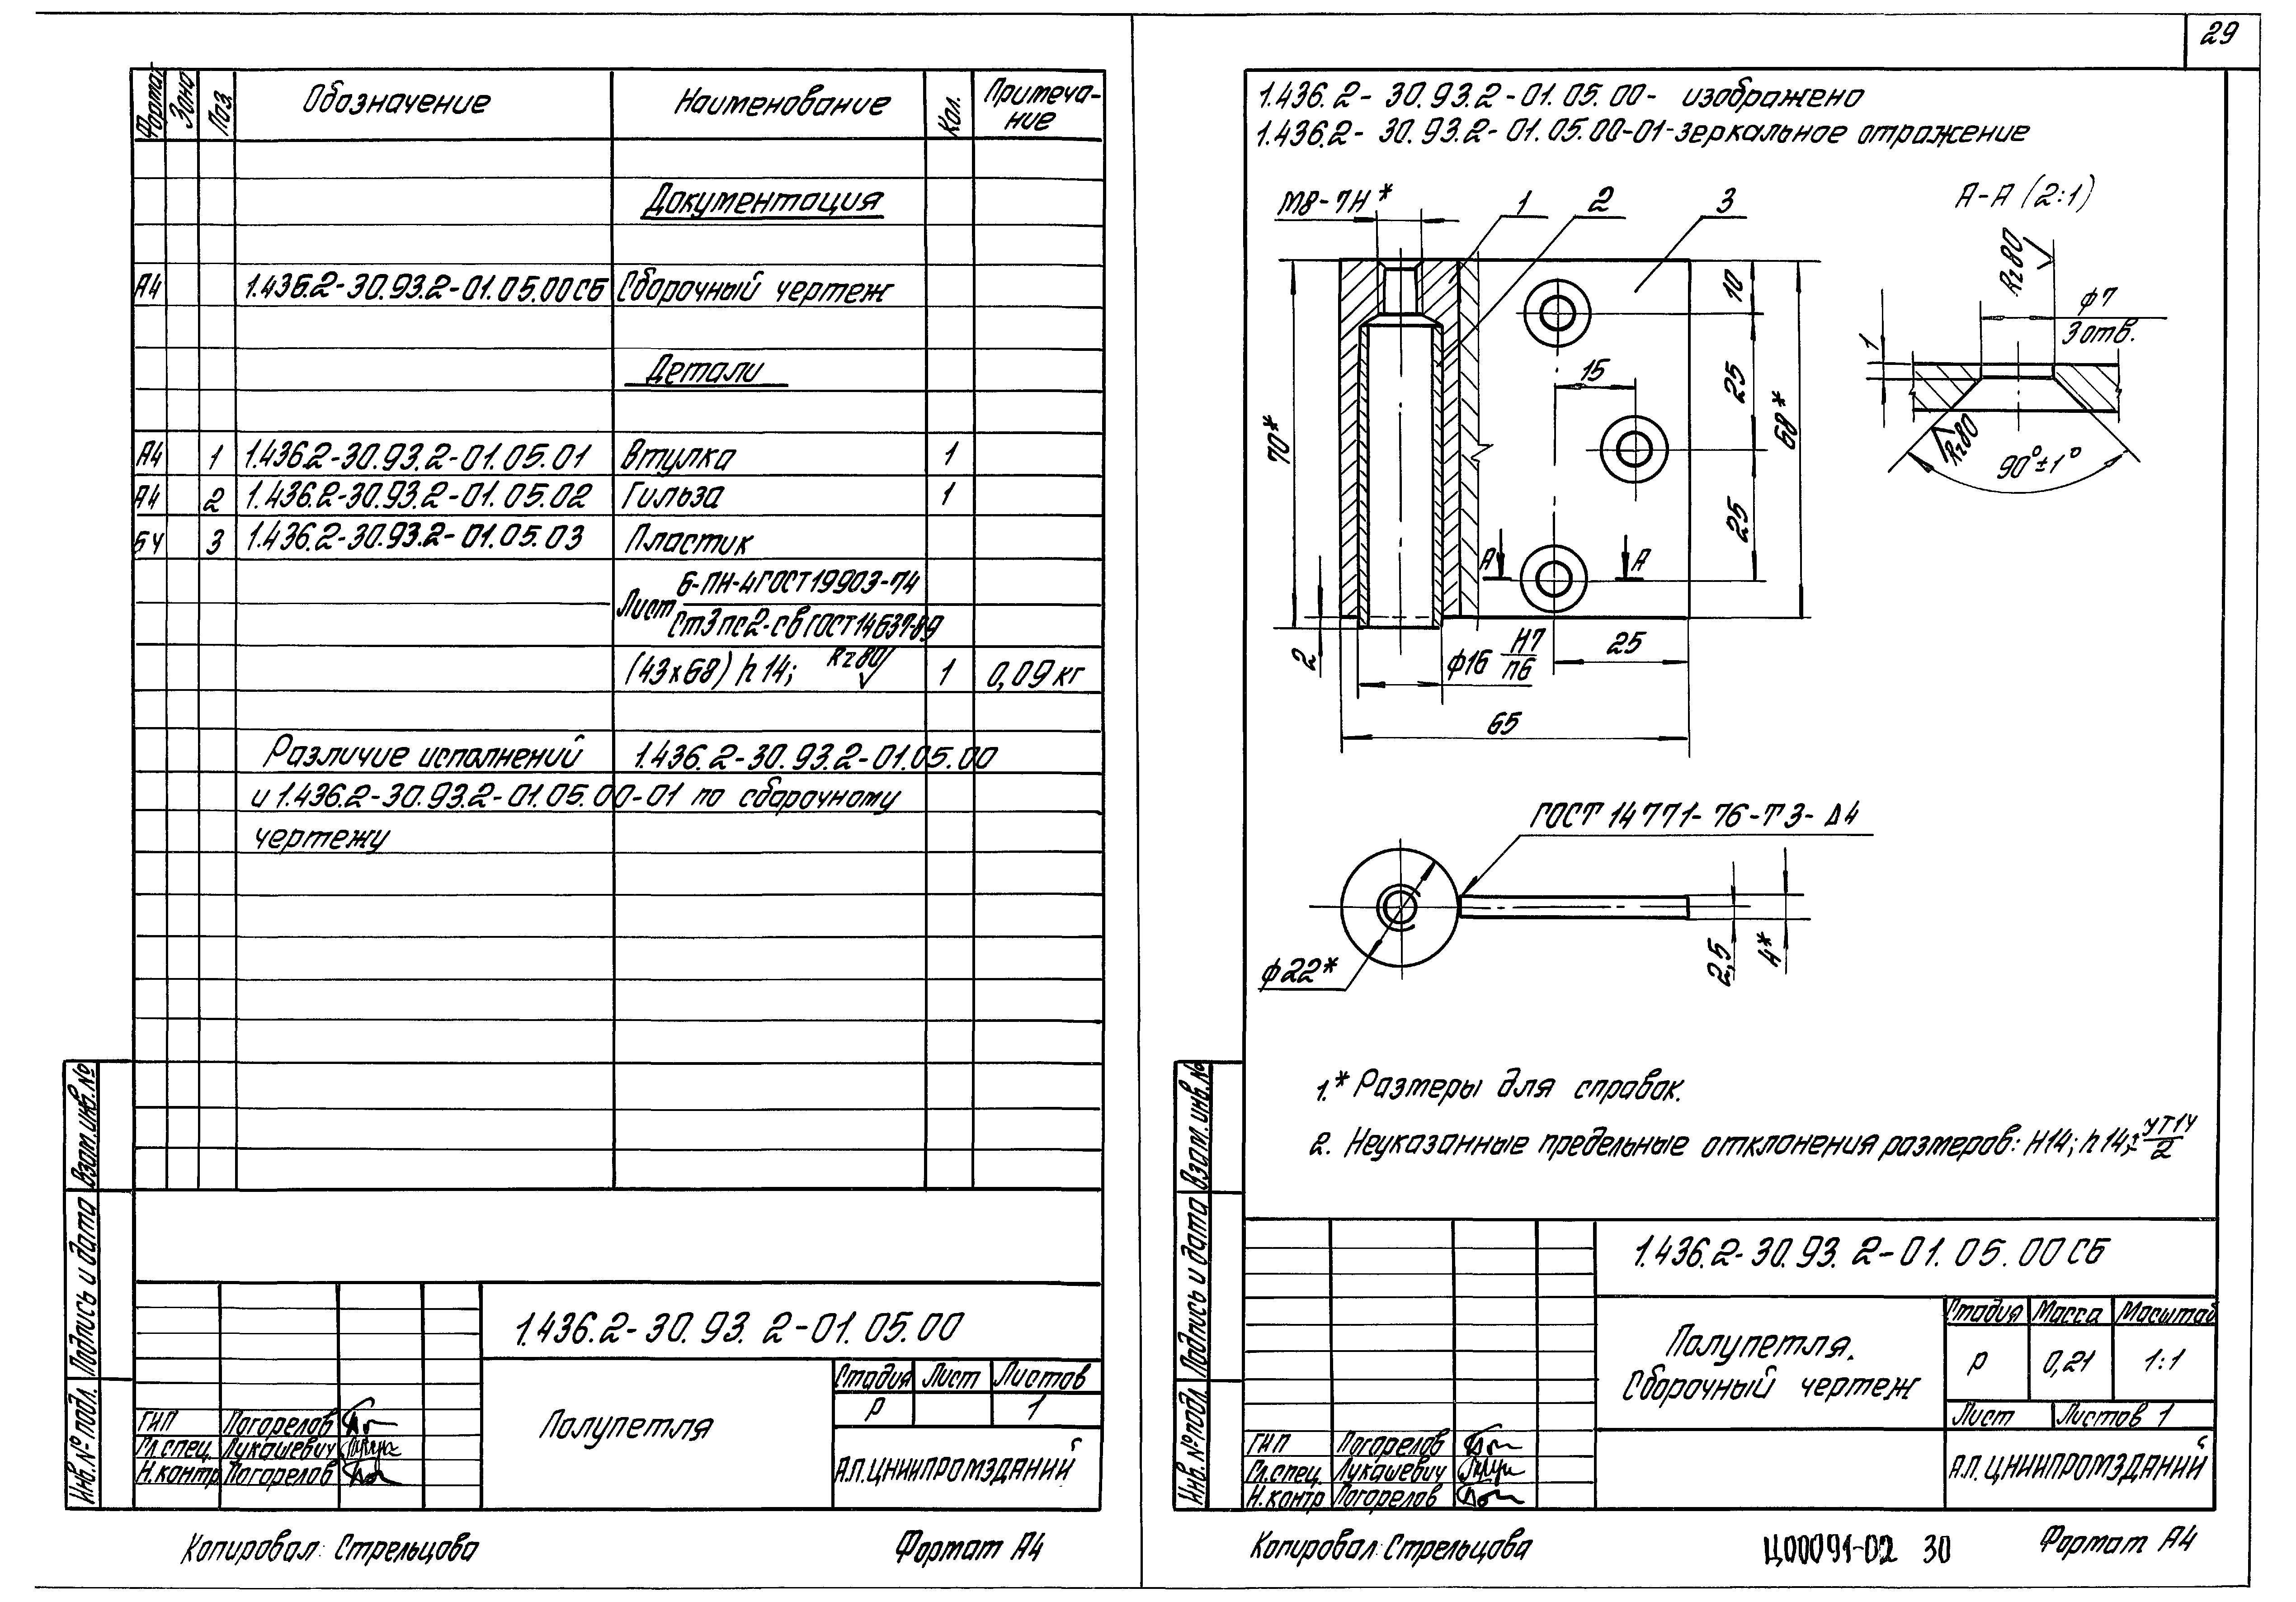 29
Формат Зона Поз Обозначение Наименование Кол. Примеча-
ние
Документация
А4 1.436.2-30.93.2-01.05.00СБ Сборочный чертеж
Детали
А4 1 1.436.2-30.93.2-01.05.01 Втулка 1
А4 2 1.436.2-30.93.2-01.05.02 Гильза 1
БЧ 3 1.436.2-30.93.2-01.05.03 Пластик
Лист 6-ПН-4ГОСТ19903-74
Ст3пс2-свГОСТ14637-89
(43х68) h14; Rz80 1 0,09кг
Различие исполнений 1.436.2-30.93.2-01.05.00
и 1.436.2-30.93.2-01.05.00-01 по сборочному
чертежу
Взам.инв.№
Подпись и дата
Инв.№подл.
1.436.2-30.93.2-01.05.00
Полупетля
Стадия Лист Листов
Р 1
А.П.ЦНИИПРОМЗДАНИЙ
ГИП Погорелов
Гл.спец. Лукашевич
Н.контр Погорелов
Копировал: Стрельцова Формат А4
1.436.2-30.93.2-01.05.00- изображено
1.436.2-30.93.2-01.05.00-01-зеркальное отражение
М8-7Н*
1 2 3
А-А (2:1)
Rz80
ф7
3отв.
1
Rz80
90°±1°
10
25
25
15
68*
70*
2
А А
ф16 H7
n6
25
65
ГОСТ 14771-76-Т3-Δ4
ф22*
2,5
4*
1.* Размеры для справок.
2. Неуказанные предельные отклонения размеров: Н14; h14; ± УТ14
2
Взам.инв.№
Подпись и дата
Инв.№подл.
1.436.2-30.93.2-01.05.00СБ
Полупетля.
Сборочный чертеж
Стадия Масса Масштаб
Р 0,21 1:1
Лист Листов 1
А.П.ЦНИИПРОМЗДАНИЙ
ГИП Погорелов
Гл.спец. Лукашевич
Н.контр Погорелов
Копировал: Стрельцова Ц00091-02 30 Формат А4